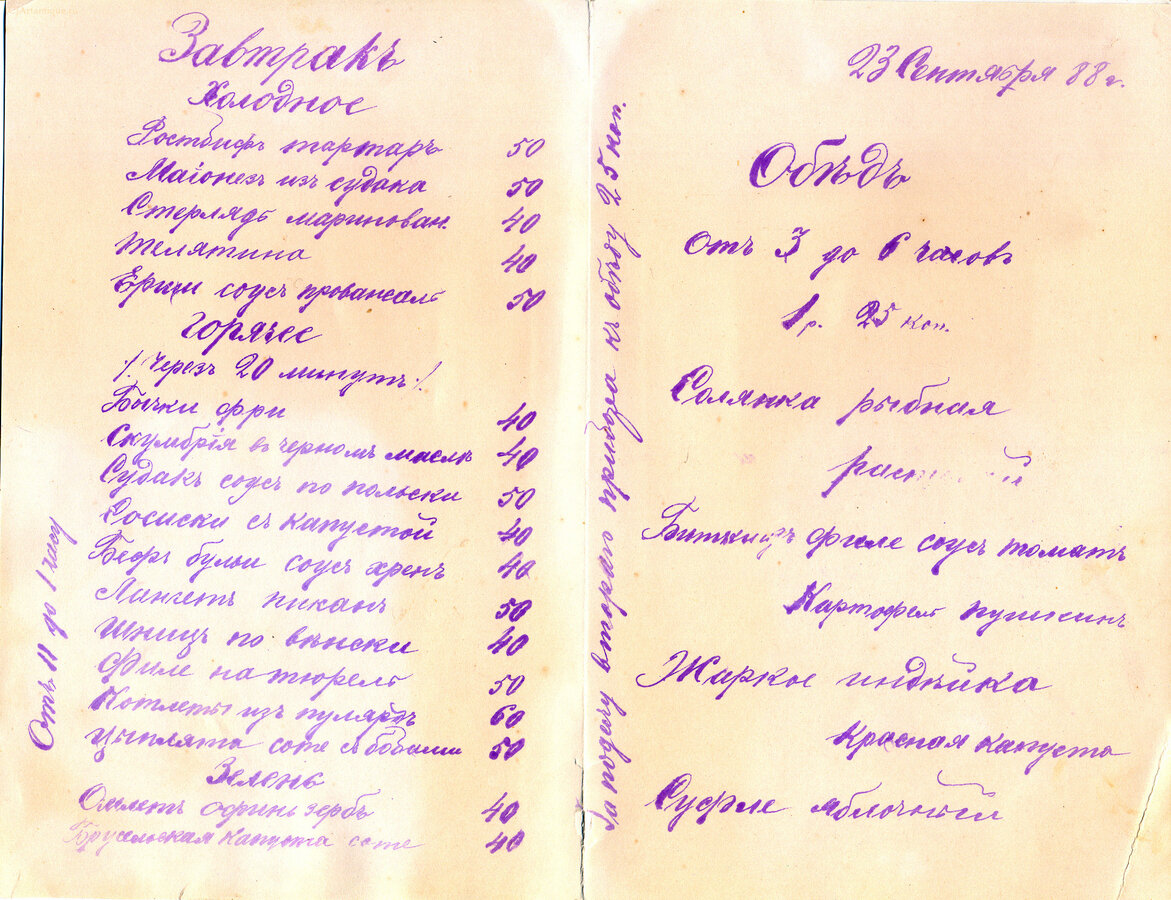 Завтракъ
Холодное
Ростбифъ тартаръ 50
Маіонезъ изъ судака 50
Стерлядь маринован. 40
Телятина 40
Ерши соусъ провансаль 50
Горячее
/: Черезъ 20 минутъ :/
Бычки фри 40
Скумбрія въ черномъ маслѣ 40
Судакъ соусъ по польски 50
Сосиски съ капустой 40
Бефъ бульи соусъ хренъ 40
Лангетъ пиканъ 50
Шницъ по вѣнски 40
Филе натюрель 50
Котлеты изъ пулярдъ 60
Цыплята соте съ бобами 50
Зелень
Омлетъ офинь зербъ 40
Брусельская капуста соте 40
Отъ 11 до 1 часу
За подачу второго прибора къ обѣду 25 коп.
23 Сентября 88 г.
Обѣдъ
Отъ 3 до 6 часовъ
1 р. 25 коп.
Солянка рыбная
Филе соусъ томатъ
Картофель пушкинъ
Жаркое индѣйка
Красная капуста
Суфле яблочный